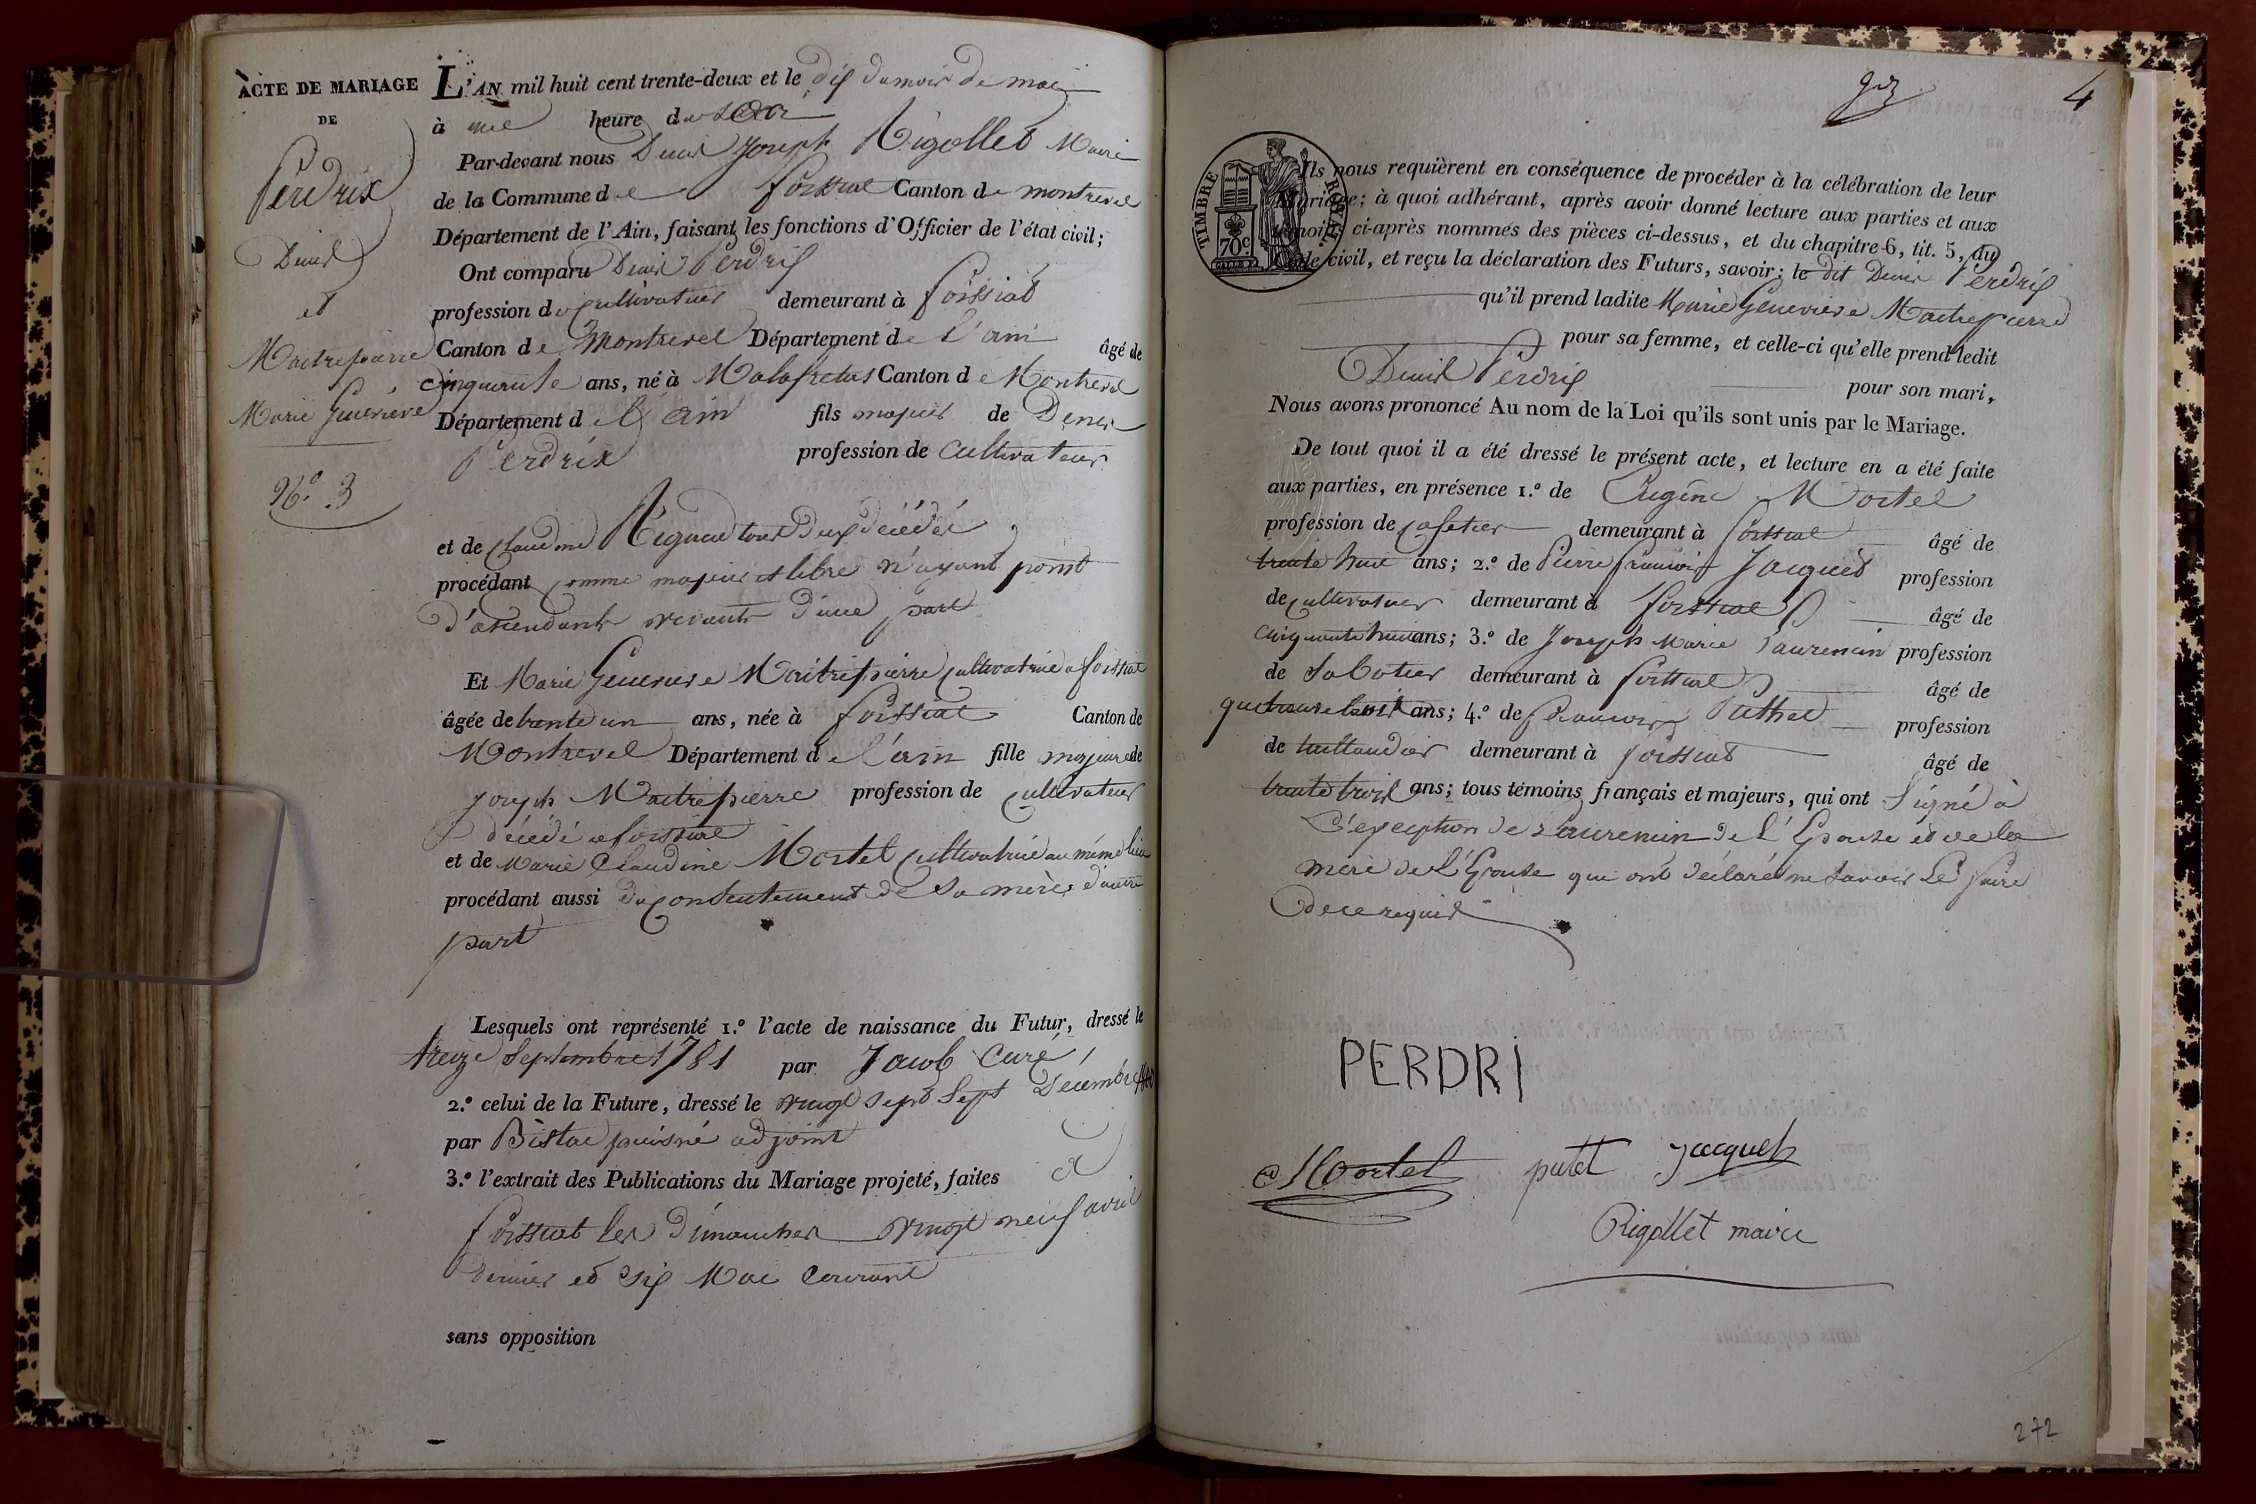 ACTE DE MARIAGE
DE
Perdrix
Denis
et
Maitrepierre
Marie Geneviève
N.° 3
L'AN mil huit cent trente-deux et le dix du mois de mai
à une heure du soir
Par-devant nous Denis Joseph Rigollet Maire
de la Commune de foissiat Canton de montrevel
Département de l'Ain, faisant les fonctions d'Officier de l'état civil;
Ont comparu Denis Perdrix
profession de cultivateur demeurant à foissiat
Canton de Montrevel Département de l'ain âgé de
cinquante ans, né à Malafretas Canton de Montrevel
Département de l'ain fils majeur de Denis
Perdrix profession de cultivateur
et de Claudine Rigaud tous deux décédés
procédant comme majeur et libre n'ayant point
d'ascendants vivants d'une part
Et Marie Geneviève Maitrepierre cultivatrice a foissiat
âgée de trente un ans, née à foissiat Canton de
Montrevel Département de l'ain fille majeure de
Joseph Maitrepierre profession de cultivateur
décédé a foissiat
et de Marie Claudine Mortel cultivatrice au même lieu
procédant aussi du consentement de sa mère d'autre
part
Lesquels ont représenté 1.° l'acte de naissance du Futur, dressé le
treize Septembre 1781 par Jacob curé
2.° celui de la Future, dressé le vingt sept Décembre
par puisné adjoint
3.° l'extrait des Publications du Mariage projeté, faites a
foissiat les dimanches vingt neuf avril
dernier et six Mai courant
sans opposition
4
TIMBRE ROYAL
70 c
Ils nous requièrent en conséquence de procéder à la célébration de leur
Mariage; à quoi adhérant, après avoir donné lecture aux parties et aux
témoins ci-après nommés des pièces ci-dessus, et du chapitre 6, tit. 5, du
Code civil, et reçu la déclaration des Futurs, savoir: le dit Denis Perdrix
qu'il prend ladite Marie Geneviève Maitrepierre
pour sa femme, et celle-ci qu'elle prend ledit
Denis Perdrix pour son mari,
Nous avons prononcé Au nom de la Loi qu'ils sont unis par le Mariage.
De tout quoi il a été dressé le présent acte, et lecture en a été faite
aux parties, en présence 1.° de Eugène Mortel
profession de cafetier demeurant à foissiat âgé de
trente huit ans; 2.° de Pierre françois Jacquet profession
de cultivateur demeurant à foissiat âgé de
cinquante huit ans; 3.° de Joseph Marie Laurencin profession
de Sabotier demeurant à foissiat âgé de
ans; 4.° de françois Puthet profession
de taillandier demeurant à foissiat âgé de
trente trois ans; tous témoins français et majeurs, qui ont signé à
l'exception de Laurencin de l'Epouse et de la
mère de l'Epouse qui ont déclaré ne savoir le faire
de ce requis
PERDRI
Mortel putet Jacquet
Rigollet maire
272